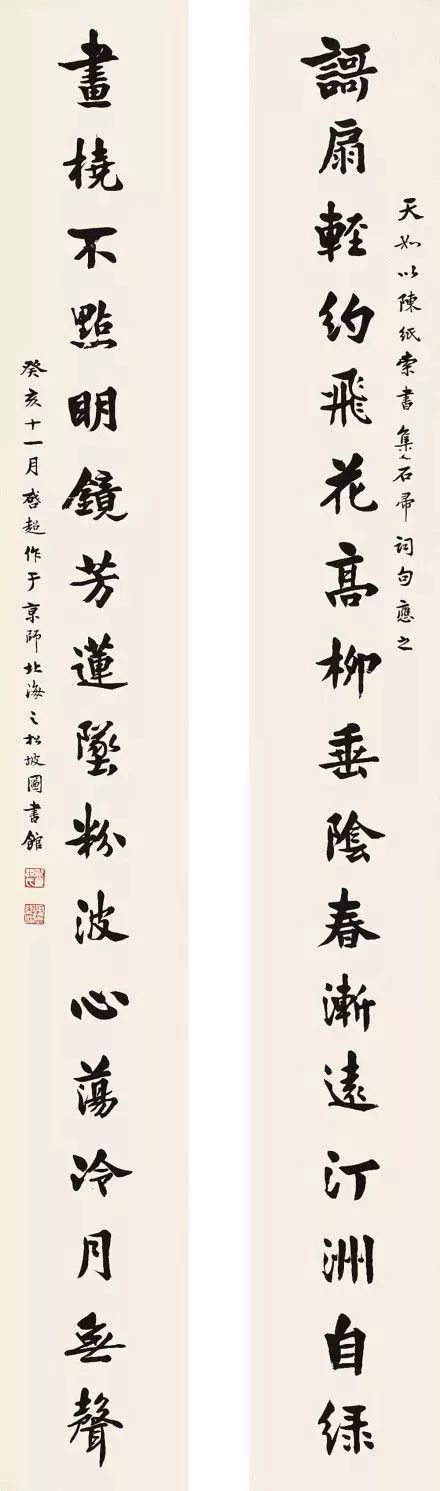 天如以陳紙索書集白石帚詞句應之
謌扇輕約飛花高柳垂陰春漸遠汀洲自綠
畫橈不點明鏡芳蓮墜粉波心蕩冷月無聲
癸亥十一月啓超作于京師北海之松坡圖書館